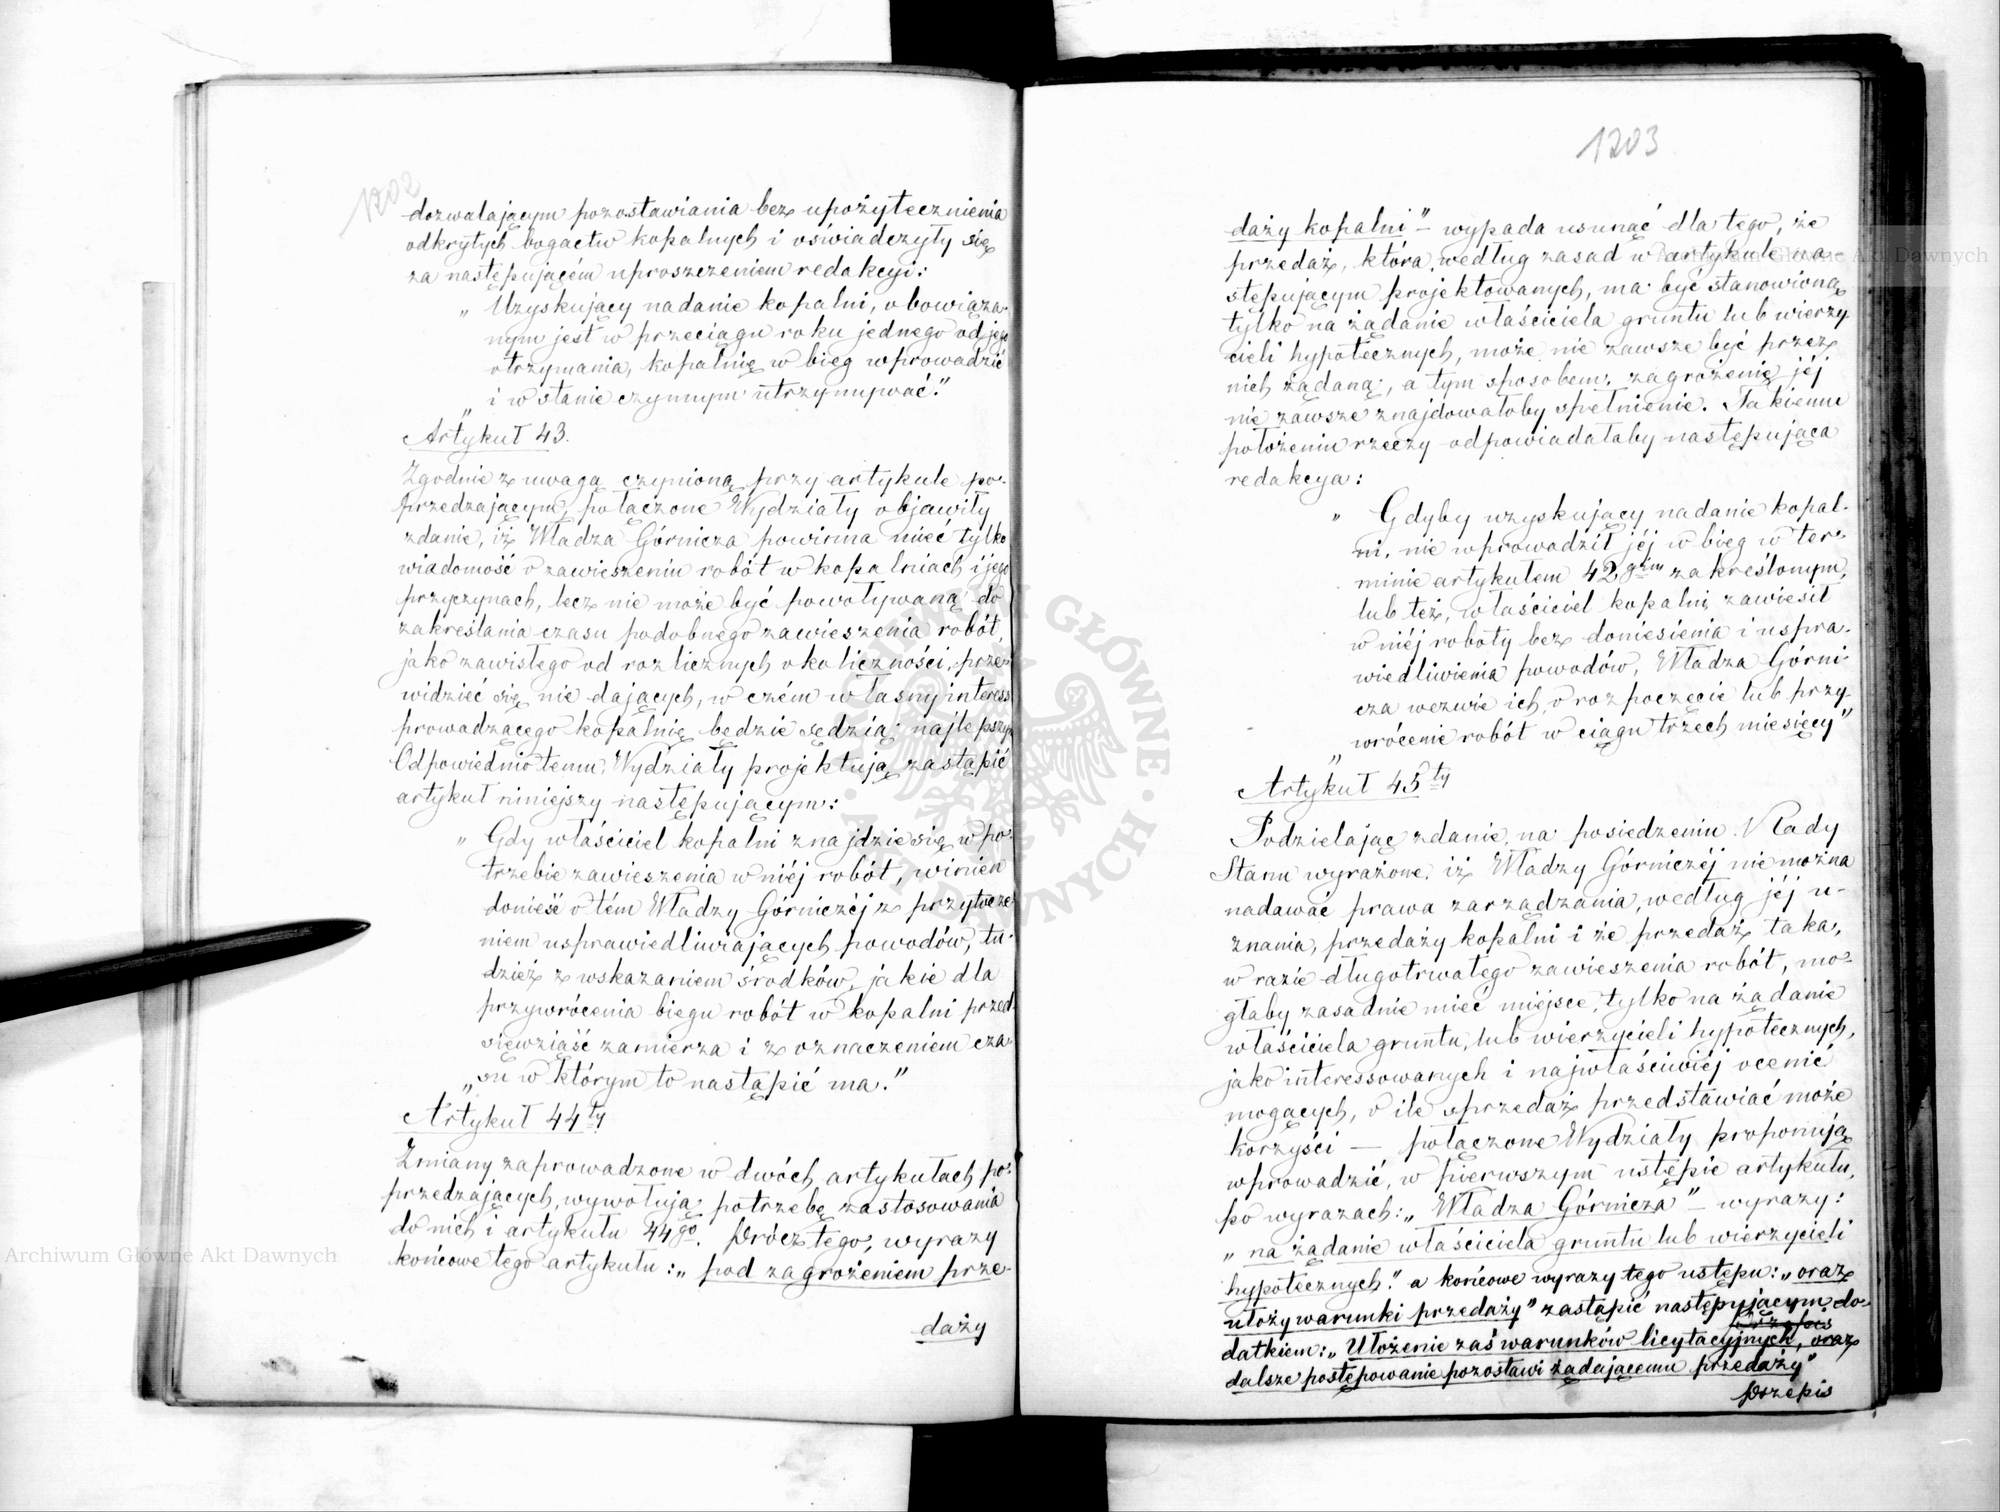 1202
dozwalającym pozostawiania bez upożytecznienia
odkrytych bogactw kopalnych i oświadczyły się
za następującém uproszczeniem redakcyi:
„ Uzyskujący nadanie kopalni, obowiąza-
nym jest w przeciągu roku jednego od jego
otrzymania, kopalnię w bieg wprowadzić
„ i w stanie czynnym utrzymywać."
Artykuł 43.
Zgodnie z uwagą czynioną przy artykule po-
przedzającym, połączone Wydziały objawiły
zdanie, iż Władza Górnicza powinna mieć tylko
wiadomość o zawieszeniu robót w kopalniach i jego
przyczynach, lecz nie może być powoływaną do
zakreślania czasu podobnego zawieszenia robót,
jako zawisłego od rozlicznych okoliczności, prze-
widzieć się nie dających, w czém własny interess
prowadzącego kopalnię będzie sędzią najlepszym
Odpowiednio temu, Wydziały projektują zastąpić
artykuł niniejszy następującym:
„ Gdy właściciel kopalni znajdzie się w po-
trzebie zawieszenia w niéj robót, winien
donieść o tém Władzy Górniczéj z przytocze-
niem usprawiedliwiających powodów, tu-
dzież z wskazaniem środków, jakie dla
przywrócenia biegu robót w kopalni przed-
sięwziąść zamierza i z oznaczeniem cza-
„ su w którym to nastąpić ma."
Artykuł 44ty
Zmiany zaprowadzone w dwóch artykułach po-
przedzających, wywołują potrzebę zastosowania
do nich i artykułu 44go. Prócz tego, wyrazy
końcowe tego artykułu: „ pod zagrożeniem prze-
daży
1203
daży kopalni" – wypada usunąć dla tego, że
przedaż, która, według zasad w artykule na-
stępującym projektowanych, ma być stanowioną
tylko na żądanie właściciela gruntu lub wierzy
cieli hypotecznych, może nie zawsze być przez
nich żądaną, a tym sposobem, zagrożenie jéj
nie zawsze znajdowałoby spełnienie. Takiemu
położeniu rzeczy odpowiadałaby następująca
redakcya:
„ Gdyby uzyskujący nadanie kopal-
ni, nie wprowadził jéj w bieg w ter-
minie artykułem 42gim zakreślonym,
lub też, właściciel kopalni zawiesił
w niéj roboty bez doniesienia i uspra-
wiedliwienia powodów, Władza Górni-
cza wezwie ich, o rozpoczęcie lub przy
„ wrócenie robót w ciągu trzech miesięcy"
Artykuł 45ty
Podzielając zdanie, na posiedzeniu Rady
Stanu wyrażone, iż Władzy Górniczéj nie można
nadawać prawa zarządzania, według jéj u-
znania, przedaży kopalni i że przedaż taka,
w razie długotrwałego zawieszenia robót, mo-
głaby zasadnie mieć miejsce, tylko na żądanie
właściciela gruntu, lub wierzycieli hypotecznych,
jako interessowanych i najwłaściwiéj ocenić
mogących, o ile sprzedaż przedstawiać może
korzyści — połączone Wydziały proponują
wprowadzić, w pierwszym ustępie artykułu,
po wyrazach: „ Władza Górnicza" – wyrazy:
„ na żądanie właściciela gruntu lub wierzycieli
hypotecznych." a końcowe wyrazy tego ustępu: „ oraz
ułoży warunki przedaży" zastąpić następującym do-
datkiem: „ Ułożenie zaś warunków licytacyjnych, oraz
dalsze postępowanie pozostawi żądającemu przedaży"
Przepis